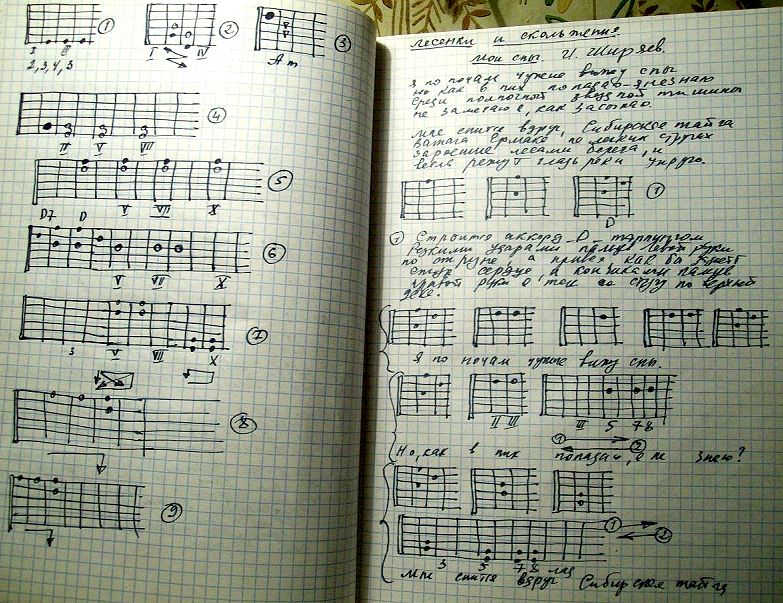 I III
2,3,4,3
①
I IV
②
Am
③
III V VIII
④
V VIII X
⑤
D7 D
V VII X
⑥
3 V VIII X
⑦
⑧
⑨
Лесенки и скольжения
Мои сны. И. Ширяев.
Я по ночам чужие вижу сны
но как в них попадаю - не знаю
среди полночной тишины
не замечаю, как засыпаю.
Мне снится вдруг, Сибирская тайга
Ватага Ермака на стругах
заросшие лесами берега, и
режут гладь реки упруго.
D
①
① Строится аккорд D
Резкими ударами пальца левой руки
по струне, а правая как бы
стук сердца, кончиками пальцев
правой руки о по верхней
деке.
Я по ночам чужие вижу сны.
II III
III 5 7 8
① ②
Но, как в них попадаю, я не знаю?
① ②
3 5 7 8 лад
Мне снится вдруг Сибирская тайга